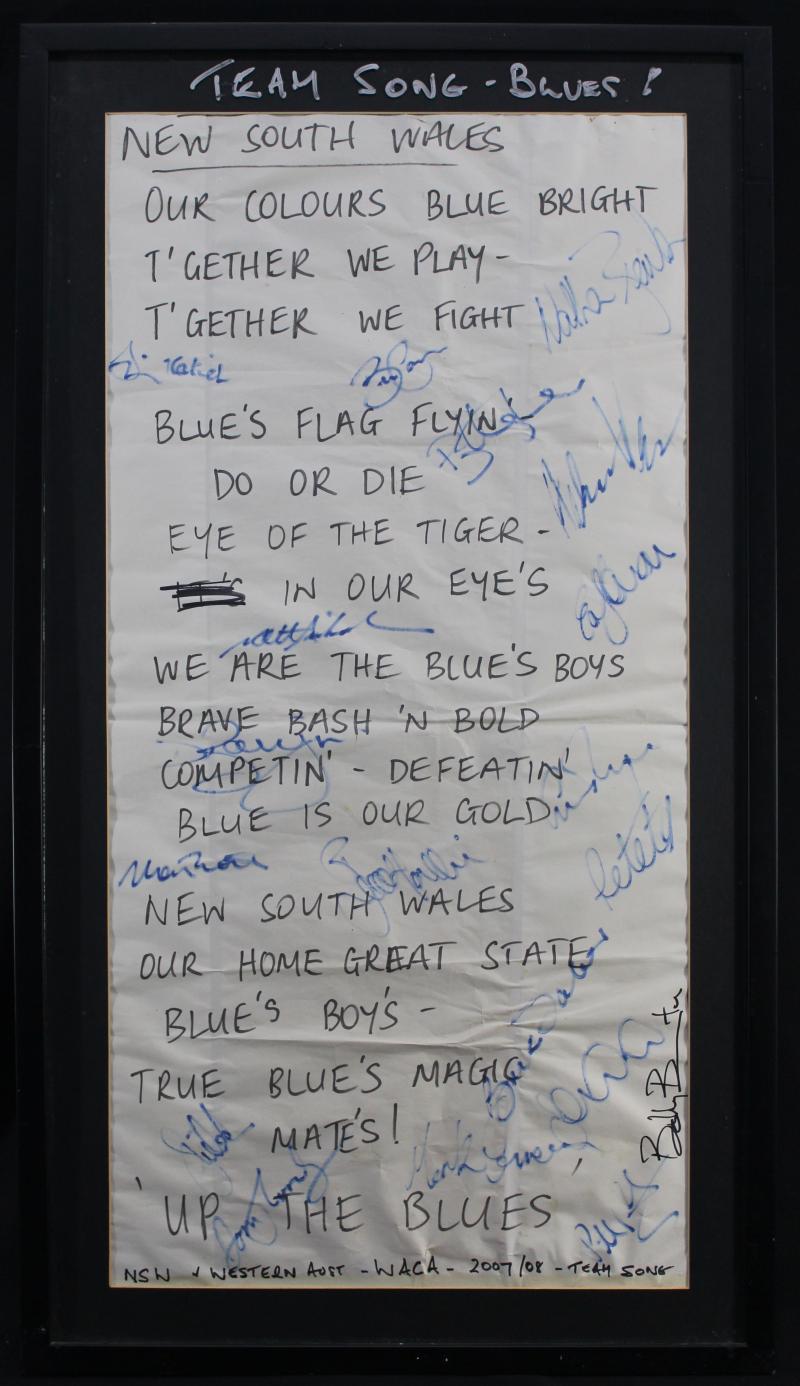 TEAM SONG - BLUES!
NEW SOUTH WALES
OUR COLOURS BLUE BRIGHT
T'GETHER WE PLAY -
T'GETHER WE FIGHT
Katich
BLUE'S FLAG FLYIN' -
DO OR DIE
EYE OF THE TIGER -
IN OUR EYE'S
WE ARE THE BLUE'S BOYS
BRAVE BASH 'N BOLD
COMPETIN' - DEFEATIN'
BLUE IS OUR GOLD
NEW SOUTH WALES
OUR HOME GREAT STATE
BLUE'S BOY'S -
TRUE BLUE'S MAGIC
MATE'S!
'UP THE BLUES'
NSW v WESTERN AUST - WACA - 2007/08 - TEAM SONG